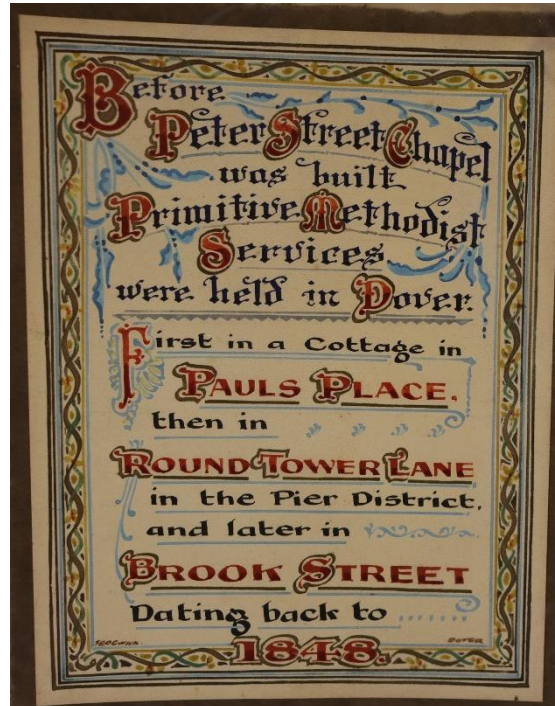 Before
Peter Street Chapel
was built
Primitive Methodist
Services
were held in Dover.
First in a Cottage in
PAULS PLACE.
then in
ROUND TOWER LANE
in the Pier District.
and later in
BROOK STREET
Dating back to ......
1848.
SEDGWICK. DOVER